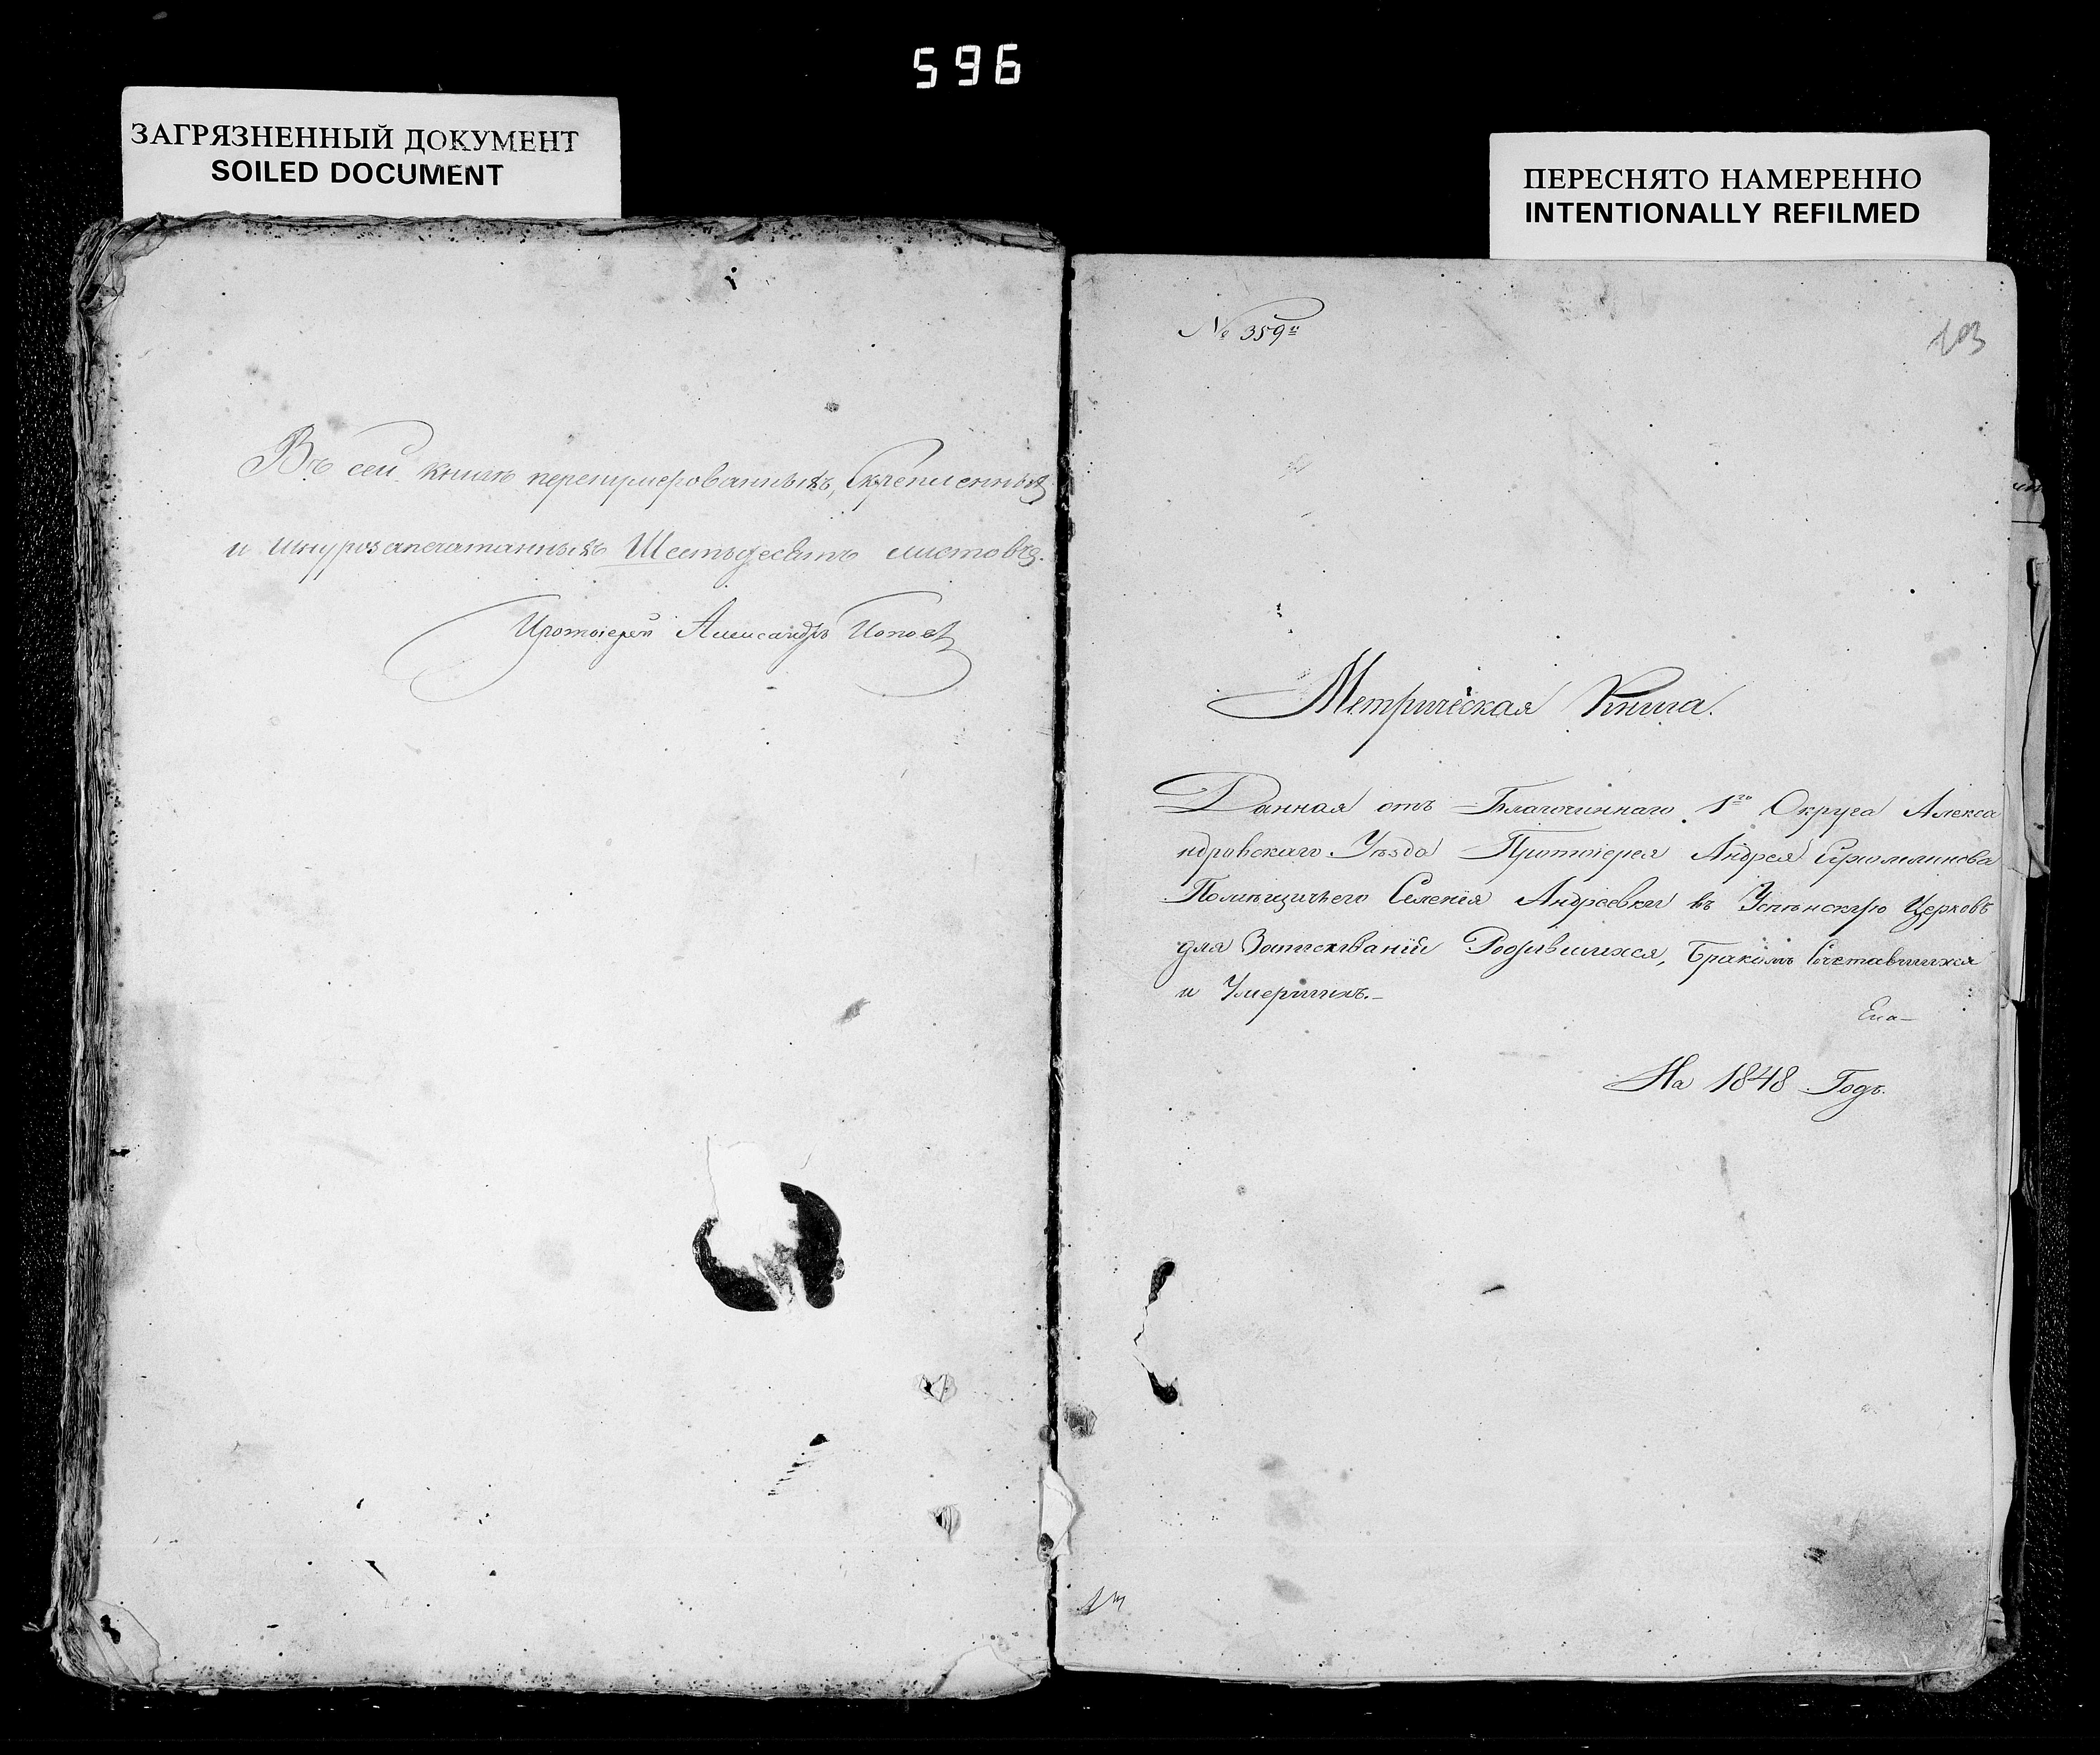 596
ЗАГРЯЗНЕННЫЙ ДОКУМЕНТ
SOILED DOCUMENT
ПЕРЕСНЯТО НАМЕРЕННО
INTENTIONALLY REFILMED
Въ сей книгѣ перенумерованныхъ, Скрепленныхъ
и шнурозапечатанныхъ Шестьдесятъ листовъ.
Протоіерей Александръ Поповъ
№ 359й
103
Метрическая Книга.
Данная отъ Благочиннаго 1го Округа Алекса
ндровскаго Уѣзда Протоіерея Андрея
Помѣщичьего Селенія Андреевки въ Успѣнскую Церковь
для Записыванія Родившихся, Бракомъ Сочетавшихся
и Умершихъ.
На 1848 Годъ.